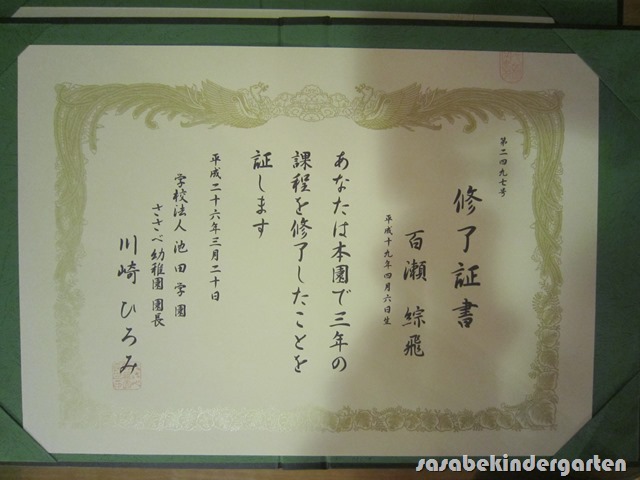 第二四九七号
修了証書
百瀬 綜飛
平成十九年四月六日生
あなたは本園で三年の
課程を修了したことを
証します
平成二十六年三月二十日
学校法人 池田学園
ささべ幼稚園 園長
川崎 ひろみ
sasabekindergarten